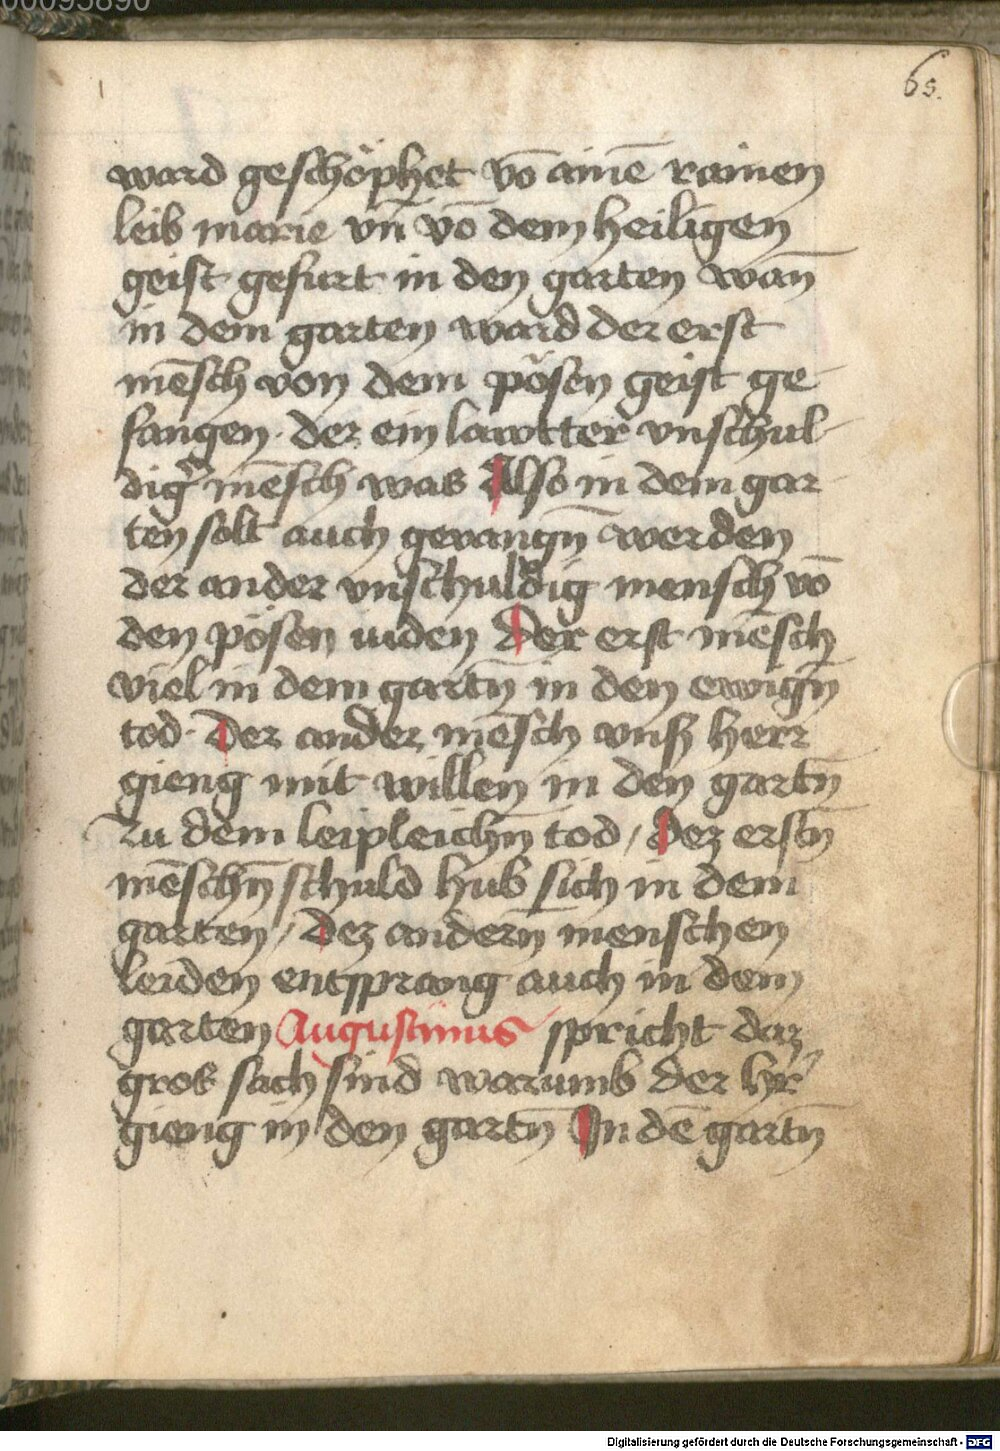 00095890
65.
ward geschöphet vō ainē rainen
leib marie vn̄ vō dem heiligen
geist gefurt in den garten wan̄
in dem garten ward der erst
mēsch von dem pösen geist ge
fangen · der ein lawtter vnschul
dig̃ mēsch was Also in dem gar
ten solt auch gevangn̄ werden
der ander vnschuldig mensch vō
den pösen iuden Der erst mēsch
viel in dem gartn̄ in den ewign̄
tod · Der ander mēsch vnß herr
gieng mit willen in den gartn̄
zu dem leipleichn̄ tod / Dez erstn̄
mēschn̄ schuld hub sich in dem
garten / Dez andern̄ menschen
leiden entsprang auch in dem
garten Augustinus spricht daz
gros sach sind warumb der h̾r
gieng in den gartn̄ In dē gartn̄
Digitalisierung gefördert durch die Deutsche Forschungsgemeinschaft - DFG